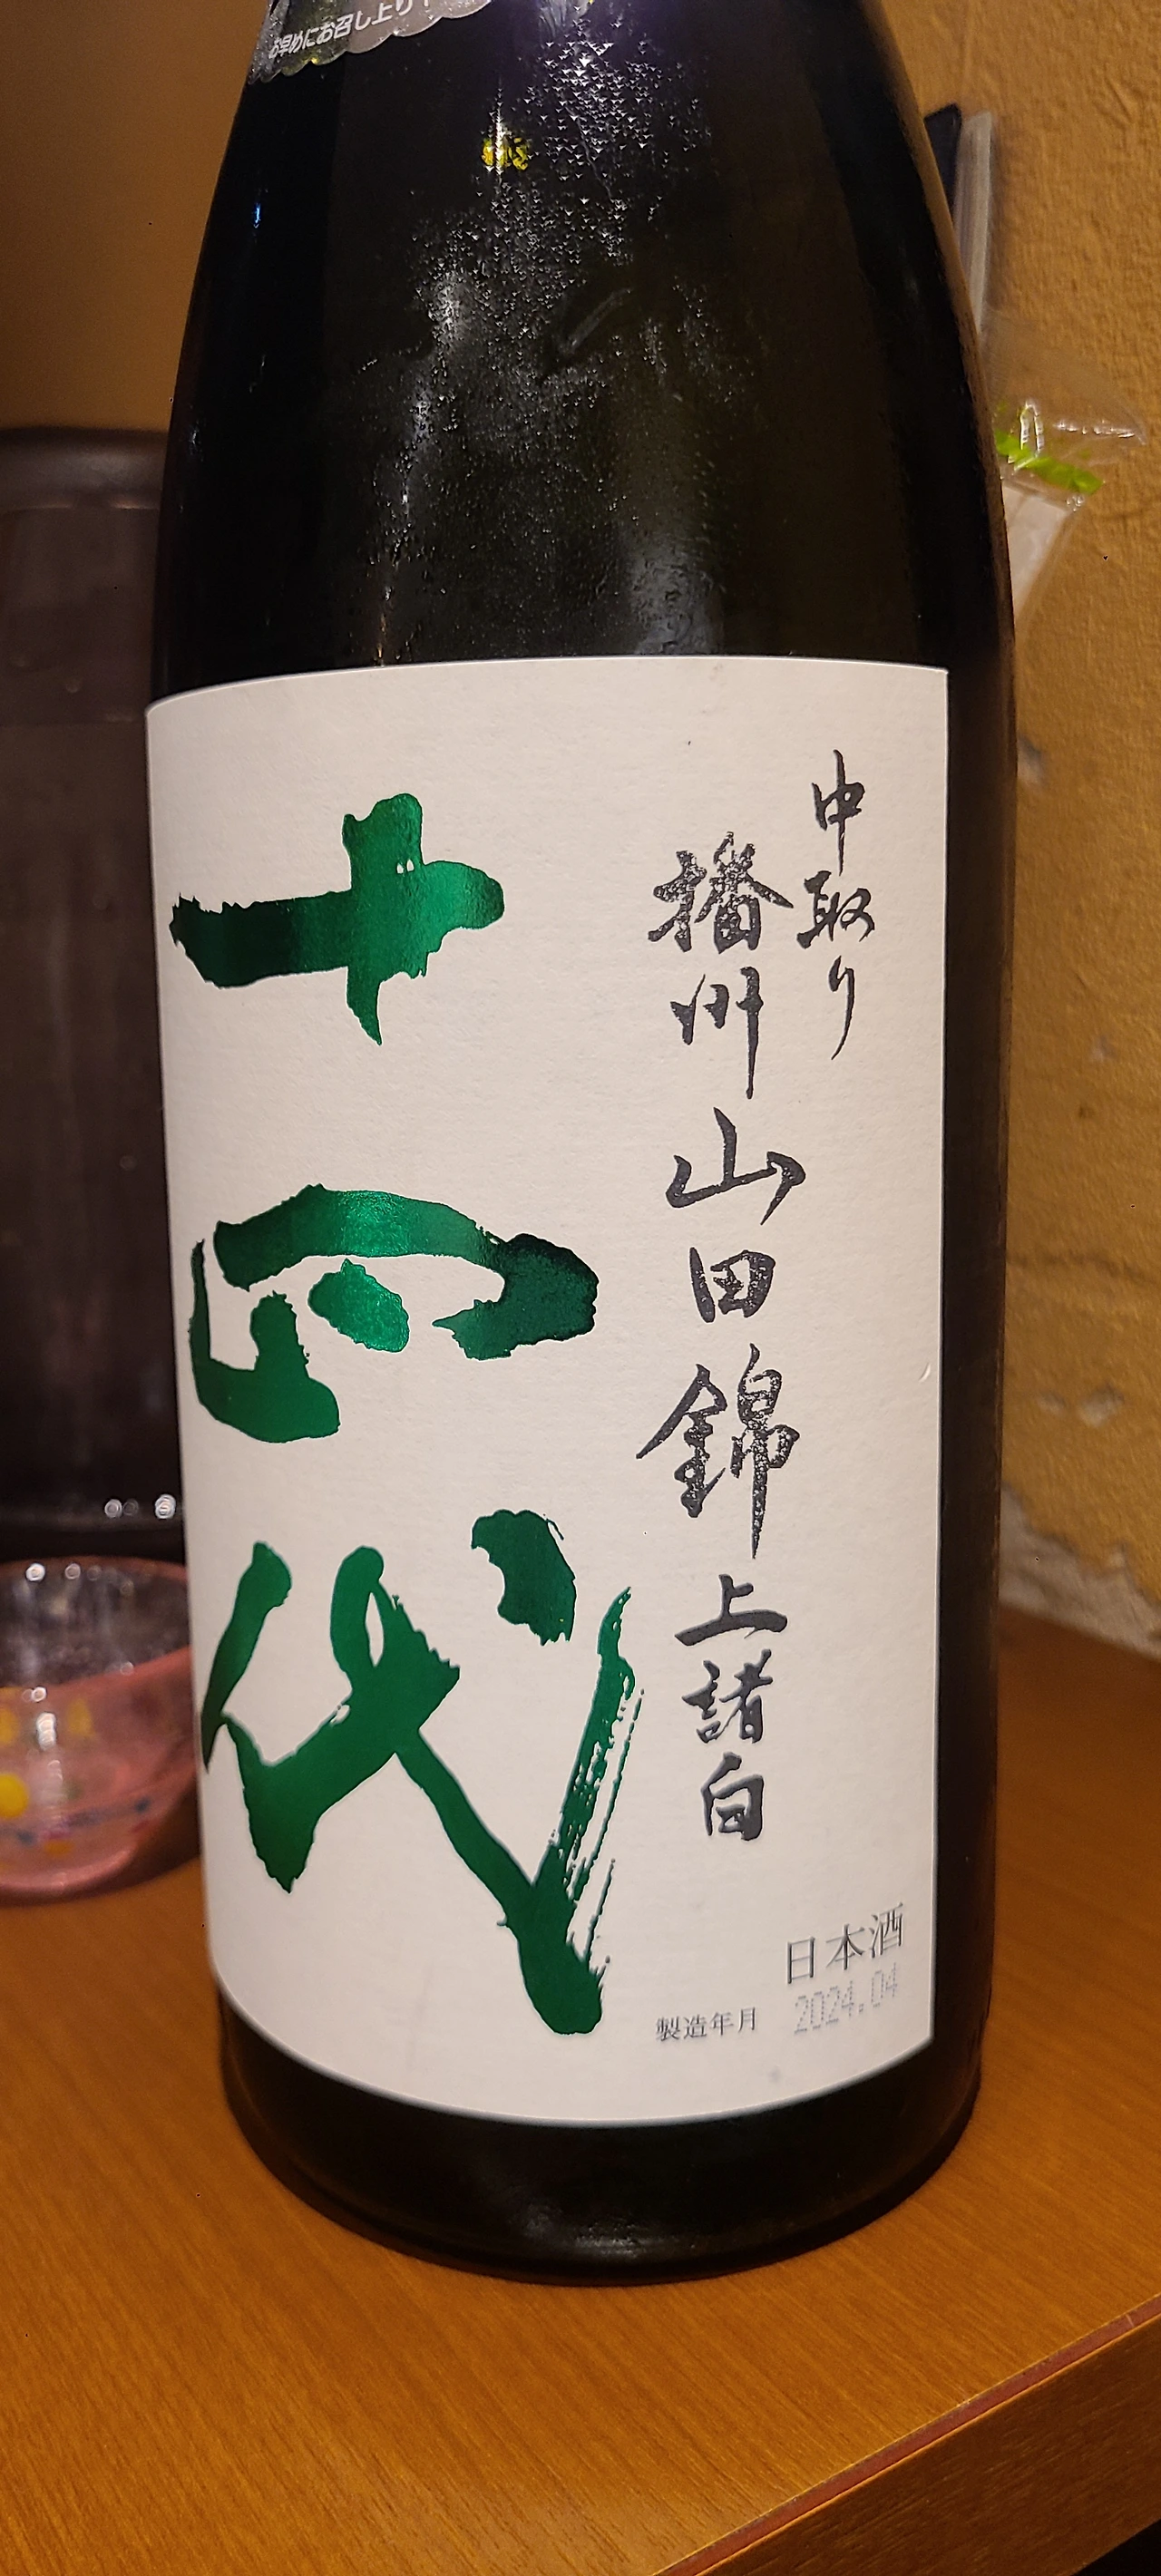 お早めにお召し上り
中取り
播州山田錦上諸白
十四代
日本酒
製造年月 2024.04